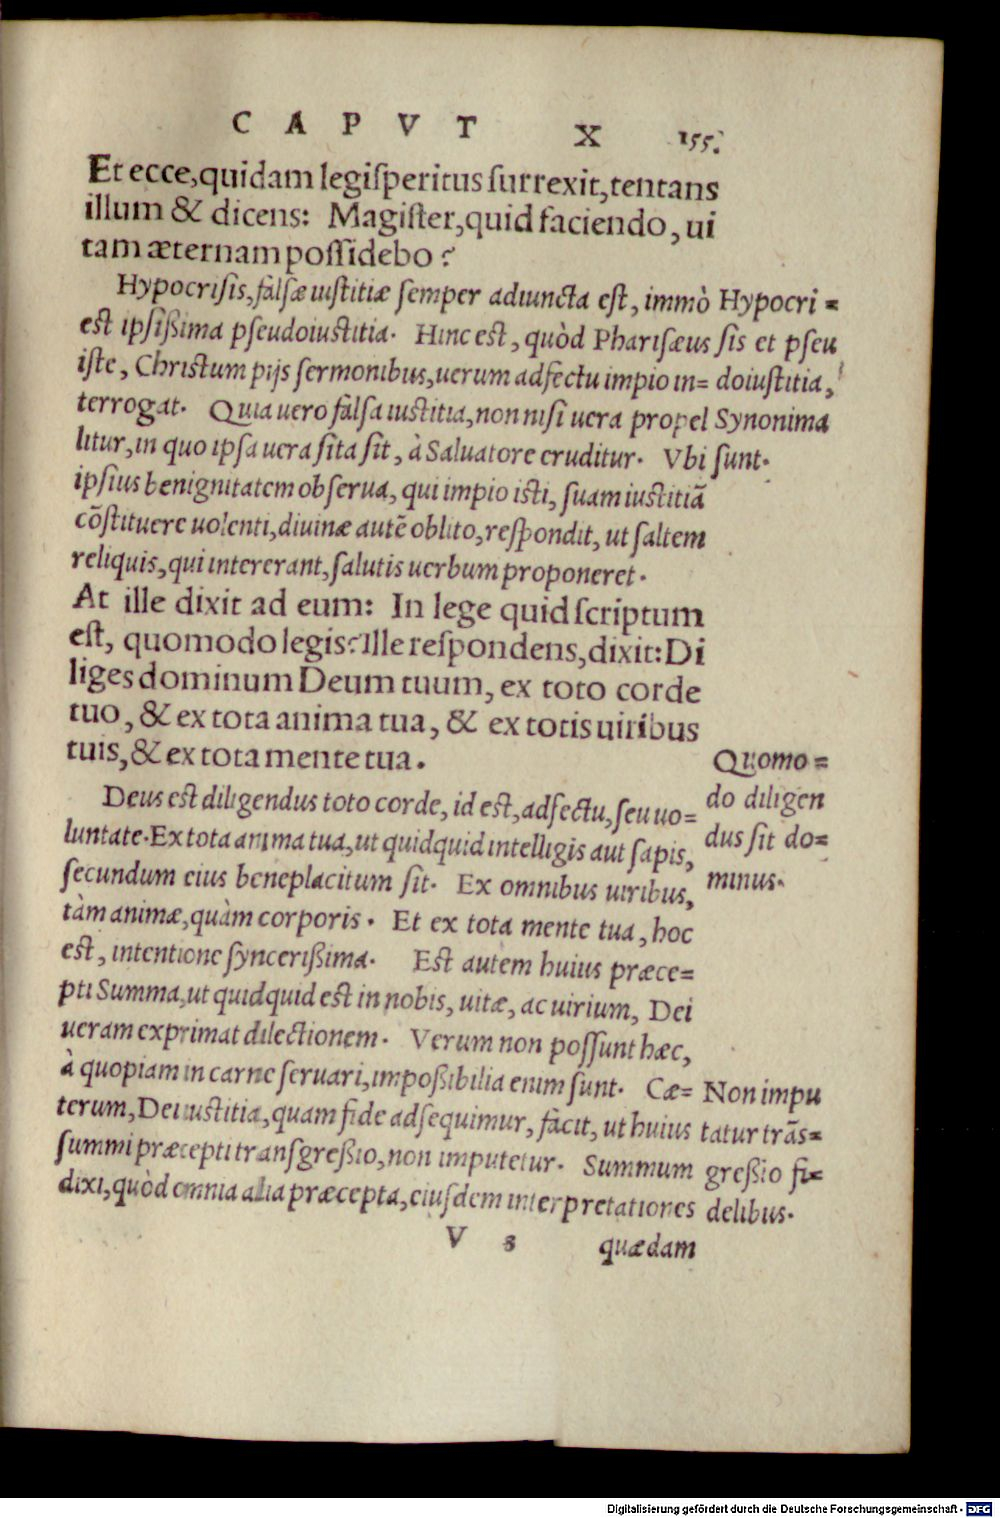 CAPVT X 155.
Et ecce, quidam legiſperitus ſurrexit, tentans
illum & dicens: Magiſter, quid faciendo, ui
tam æternam poſſidebo?
Hypocriſis, falſæ iuſtitiæ ſemper adiuncta eſt, immò
eſt ipſiſsima pſeudoiuſtitia. Hinc eſt, quòd Phariſæus
iſte, Chriſtum pijs ſermonibus, uerum adfectu impio in=
terrogat. Quia uero falſa iuſtitia, non niſi uera propel
litur, in quo ipſa uera ſita ſit, à Saluatore eruditur. Vbi
ipſius benignitatem obſerua, qui impio iſti, ſuam iuſtitiã
cõſtituere uolenti, diuinæ autẽ oblito, reſpondit, ut ſaltem
reliquis, qui intererant, ſalutis uerbum proponeret.
Hypocri=
ſis et pſeu
doiuſtitia,
Synonima
ſunt.
At ille dixit ad eum: In lege quid ſcriptum
eſt, quomodo legis? Ille reſpondens, dixit: Di
liges dominum Deum tuum, ex toto corde
tuo, & ex tota anima tua, & ex totis uiribus
tuis, & ex tota mente tua.
Deus eſt diligendus toto corde, id eſt, adfectu, ſeu uo=
luntate. Ex tota anima tua, ut quidquid intelligis aut ſapis,
ſecundum eius beneplacitum ſit. Ex omnibus uiribus,
tàm animæ, quàm corporis. Et ex tota mente tua, hoc
eſt, intentione ſynceriſsima. Eſt autem huius præce=
pti Summa, ut quidquid eſt in nobis, uitæ, ac uirium, Dei
ueram exprimat dilectionem. Verum non poſſunt hæc,
à quopiam in carne ſeruari, impoſsibilia enim ſunt. Cæ=
terum, Dei iuſtitia, quam fide adſequimur, facit, ut huius
ſummi præcepti transgreſsio, non imputetur. Summum
dixi, quòd omnia alia præcepta, eiuſdem interpretationes
Quomo=
do diligen
dus ſit do=
minus.
Non impu
tatur trãs=
greſsio fi=
delibus.
V 3 quædam
Digitalisierung gefördert durch die Deutsche Forschungsgemeinschaft - DFG